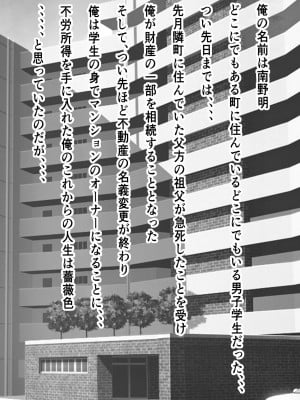 俺の名前は南野明
どこにでもある町に住んでいるどこにでもいる男子学生だった、、、
つい先日までは、、、
先月隣町に住んでいた父方の祖父が急死したことを受け
俺が財産の一部を相続することとなった
そして、つい先ほど不動産の名義変更が終わり
俺は学生の身でマンションのオーナーになることに、、、
不労所得を手に入れた俺のこれからの人生は薔薇色
、、、、と思っていたのだが、、、、